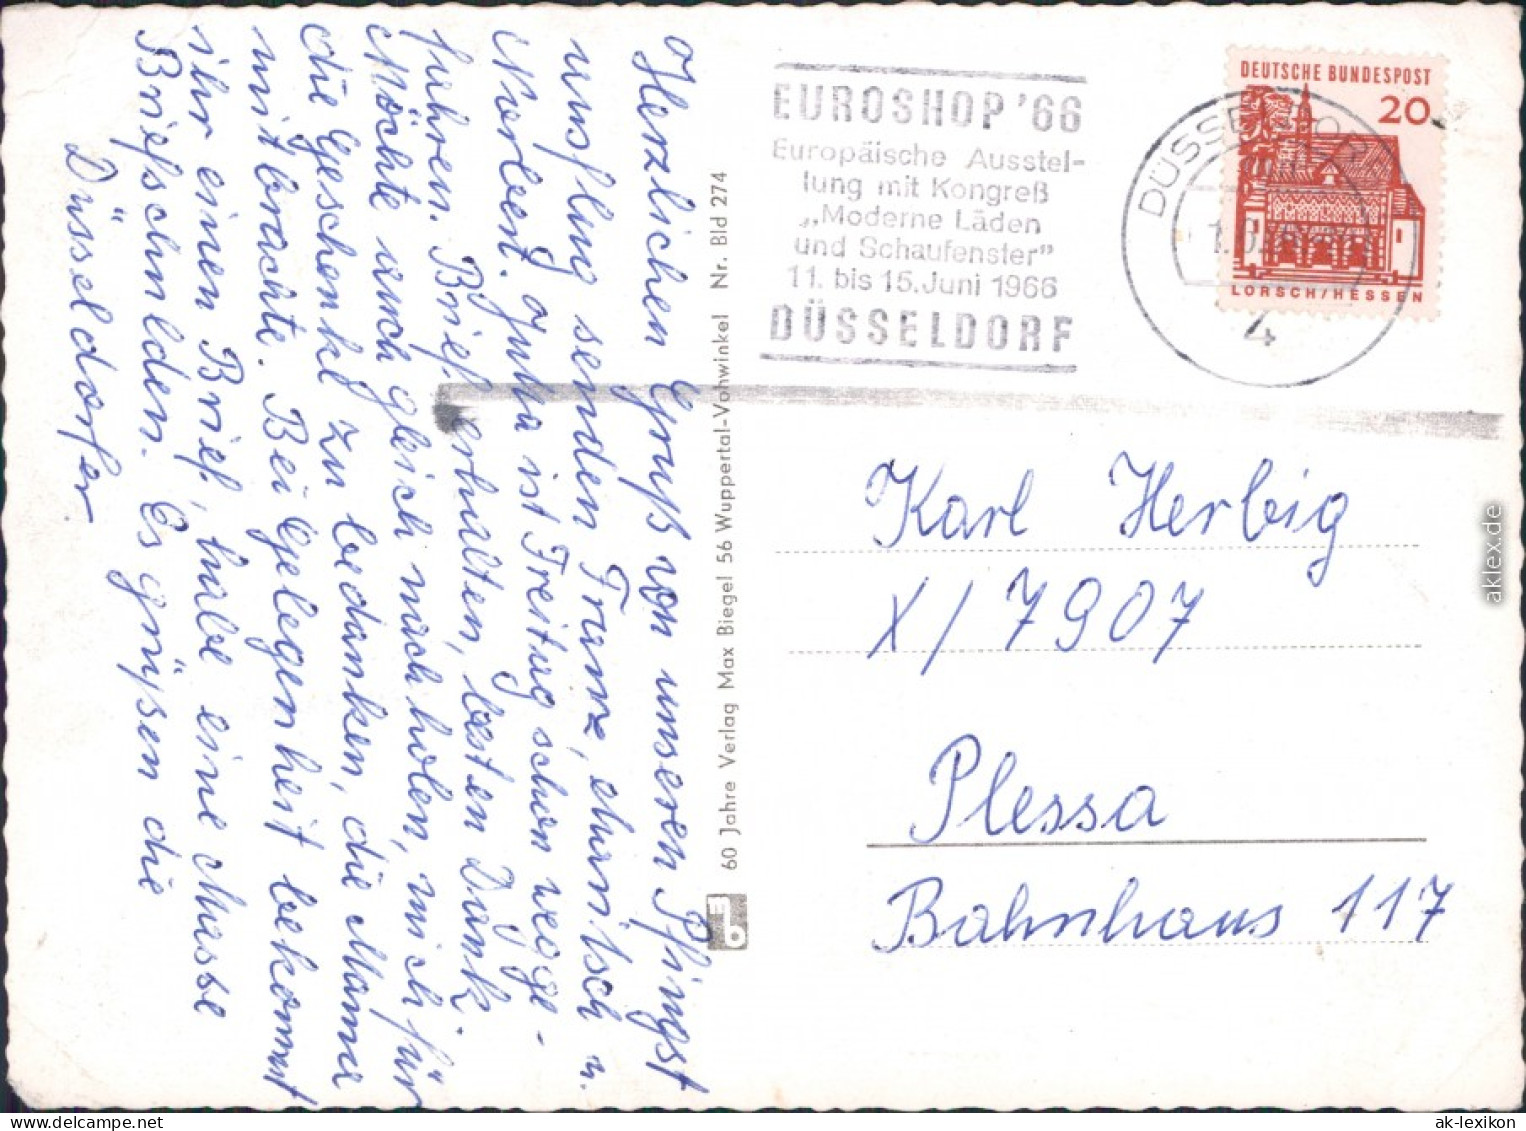 Herzlichen Gruß von unseren Pfingst
ausflug senden Franz, u.
Norbert. Jutta ist Freitag schon wegge-
fahren. Brief erhalten, besten Dank.
Möchte auch gleich nachholen, mich für
die Geschenke zu bedanken, die Mama
mitbrachte. Bei Gelegenheit bekommt
ihr einen Brief, habe eine Masse
Briefschulden. Es grüßen die
Düsseldorfer
60 Jahre Verlag Max Biegel 56 Wuppertal-Vohwinkel Nr. Bld 274
EUROSHOP '66
Europäische Ausstel-
lung mit Kongreß
„Moderne Läden
und Schaufenster”
11. bis 15. Juni 1966
DÜSSELDORF
DÜSSELDORF
4
DEUTSCHE BUNDESPOST
20
LORSCH/HESSEN
Karl Herbig
X/7907
Plessa
Bahnhaus 117
aklex.de
ak-lexikon